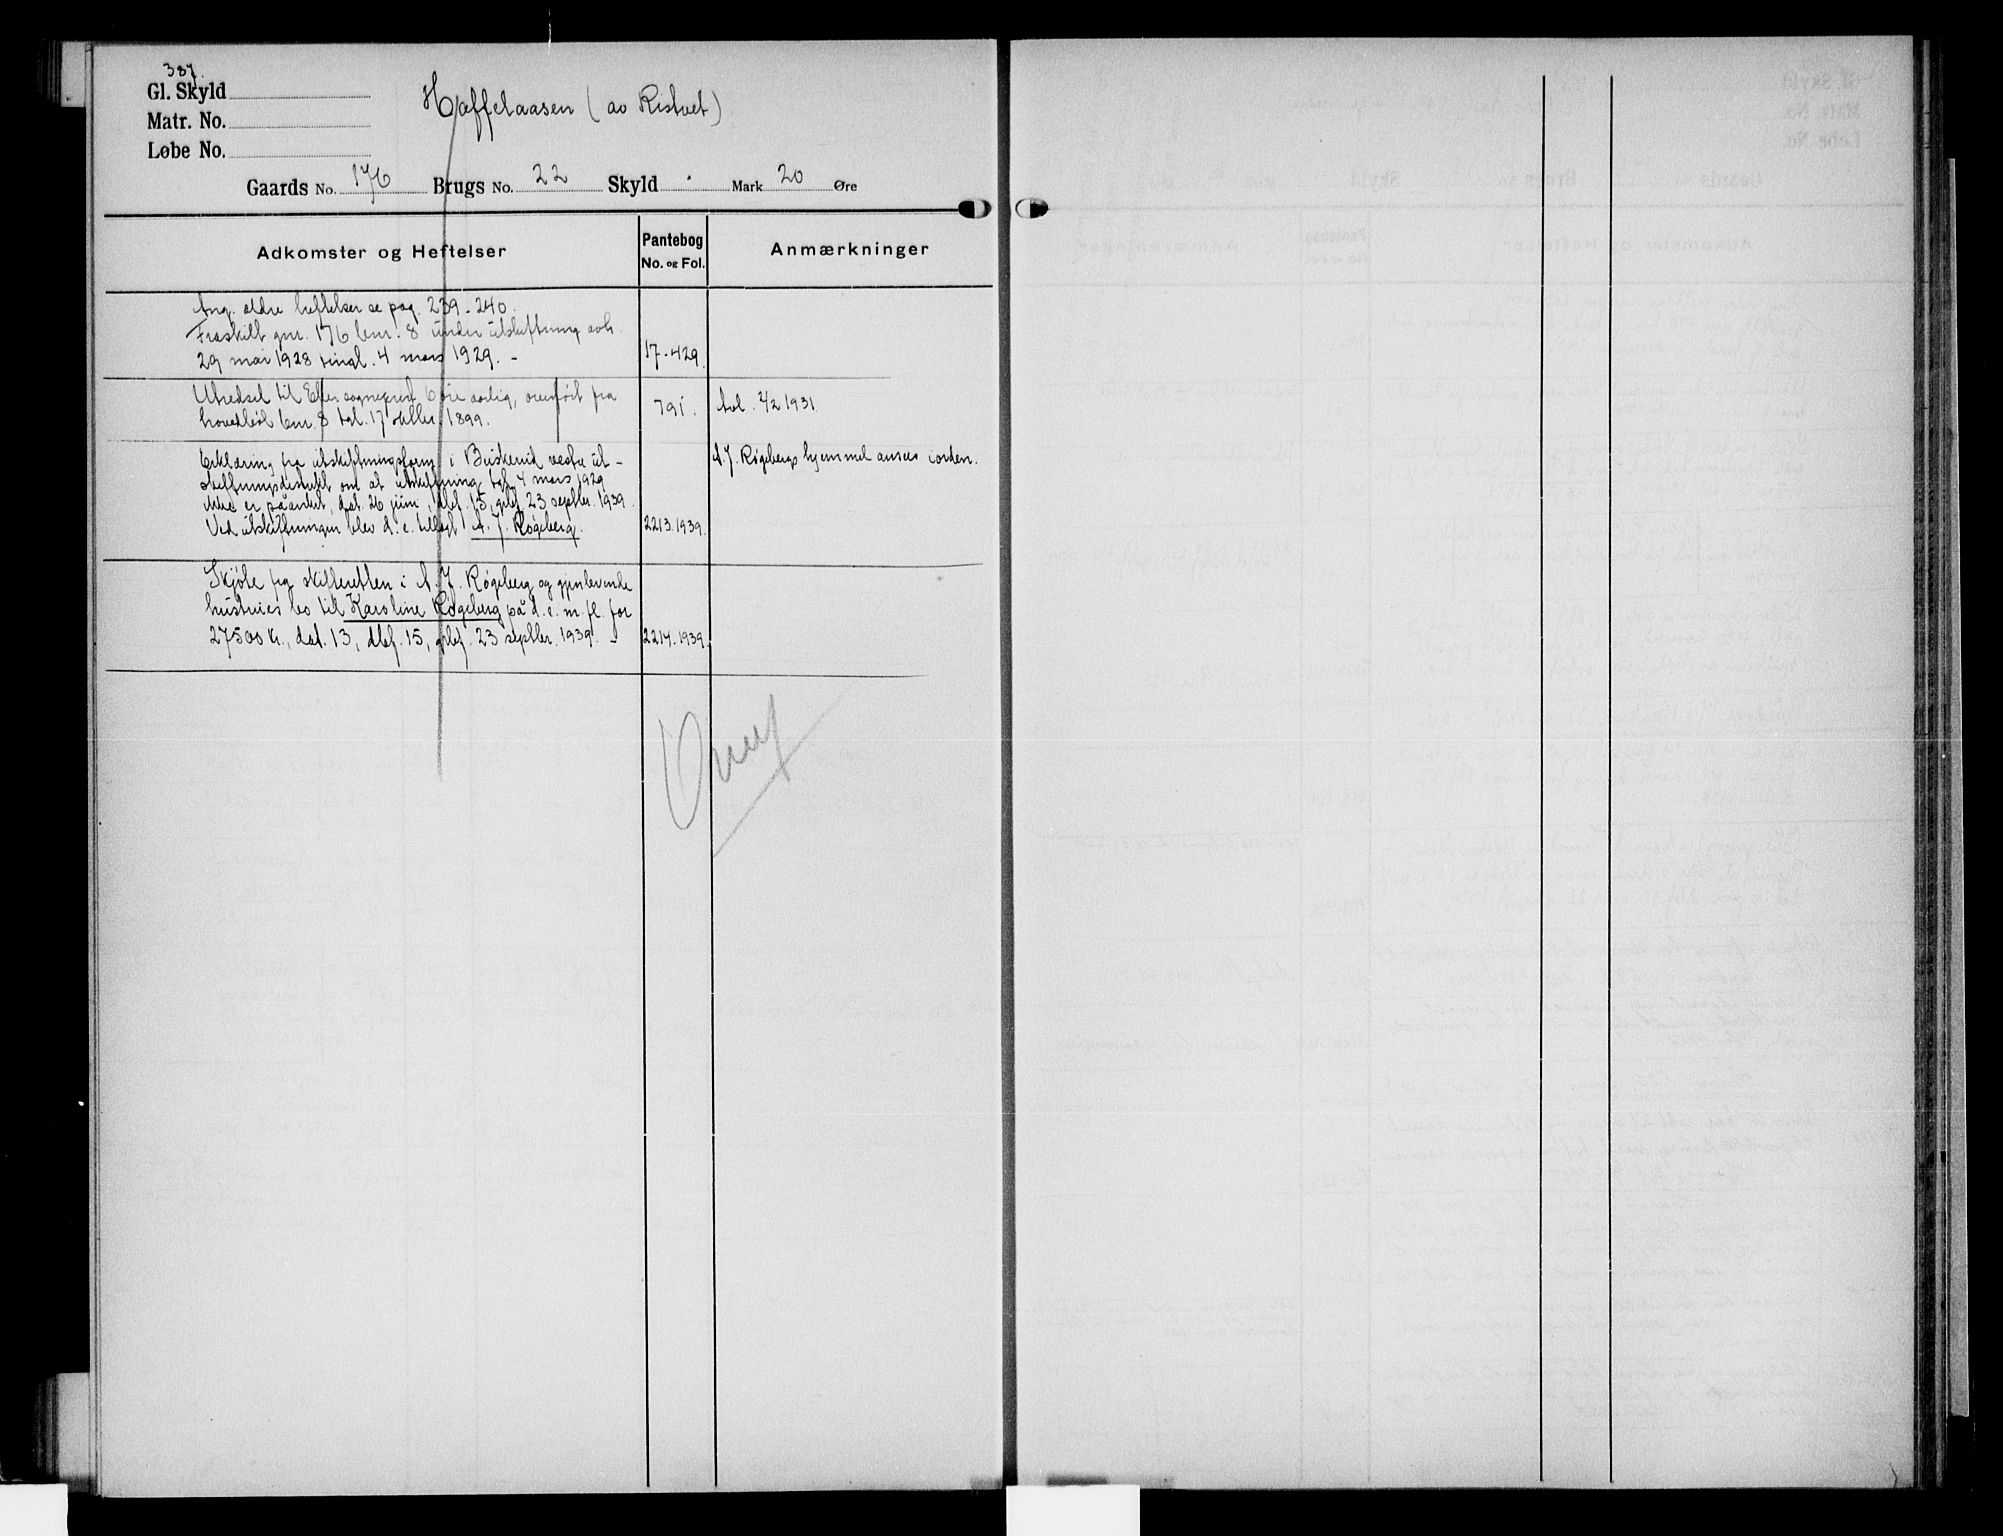 387.
Gl. Skyld
Matr. No.
Løbe No.
Hoffelaasen (av Ristvet)
Gaards No. 176 Brugs No. 22 Skyld . Mark 20 Øre
Adkomster og Heftelser
Pantebog
No. og Fol.
Anmærkninger
Ang. ældre heftelser se pag. 239-240.
Fraskilt gnr. 176 bnr. 8 under utskiftning avh.
29 mai 1928 tingl. 4 mars 1929. - 17-429.
Utredsel til sogneprest 6 øre aarlig, overført fra
hovedbøl bnr. 8 tgl. 17 oktbr. 1899. 791. Avl. 2/2 1931
Erklæring fra utskiftningsform. i Buskerud vestre ut-
skiftningsdistrikt om at utskiftning tgl. 4 mars 1929
ikke er påanket, dat. 26 juni, dbf. 15, glbf. 23 septbr. 1939.
Ved utskiftningen blev d. e. tillagt A. J. Røgeberg. 2213.1939.
A. J. Røgebergs hjemmel ansees i orden.
Skjøte fra skifteretten i A. J. Røgeberg og gjenlevende
hustrues bo til Karoline Røgeberg på d. e. m. fl. for
27500 kr., dat. 13, dbf. 15, glbf. 23 septbr. 1939. - 2214.1939.